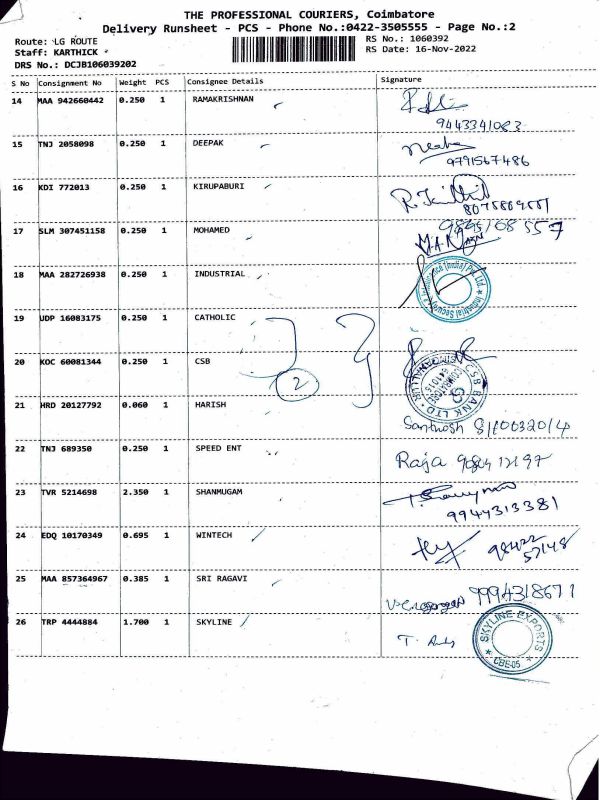 THE PROFESSIONAL COURIERS, Coimbatore
Delivery Runsheet - PCS - Phone No.:0422-3505555 - Page No.:2
Route: LG ROUTE
RS No.: 1060392
Staff: KARTHICK
RS Date: 16-Nov-2022
DRS No.: DCJB106039202
S No Consignment No Weight PCS Consignee Details Signature
14 MAA 942660442 0.250 1 RAMAKRISHNAN
9443341083
15 TNJ 2058098 0.250 1 DEEPAK
9791567486
16 KDI 772013 0.250 1 KIRUPABURI
17 SLM 307451158 0.250 1 MOHAMED
18 MAA 282726938 0.250 1 INDUSTRIAL
19 UDP 16083175 0.250 1 CATHOLIC
20 KOC 60081344 0.250 1 CSB
2
CSB BANK LTD
21 HRD 20127792 0.060 1 HARISH
Santhosh
22 TNJ 689350 0.250 1 SPEED ENT
Raja
23 TVR 5214698 2.350 1 SHANMUGAM
9944313381
24 EDQ 10170349 0.695 1 WINTECH
98422
57148
25 MAA 857364967 0.385 1 SRI RAGAVI
9994318671
26 TRP 4444884 1.700 1 SKYLINE
SKYLINE EXPORTS
CBE-05